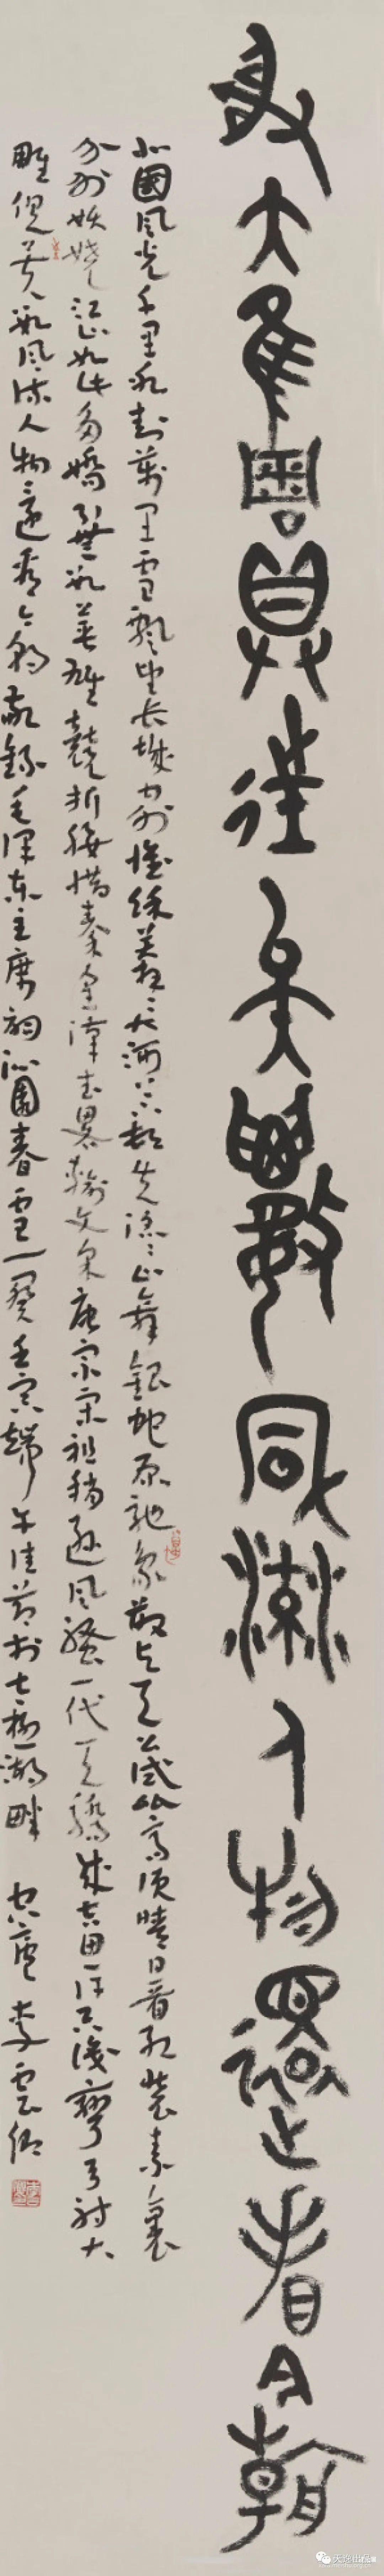 射大雕俱往矣數風流人物還看今朝
北國風光千里冰封萬里雪飄望長城內外惟餘莽々大河上下頓失滔々山舞銀蛇原馳象欲与天公試比高須晴日看紅裝素裹
分外妖嬈江山如此多嬌引無數英雄競折腰惜秦皇漢武略輸文采唐宗宋祖稍遜風騷一代天驕成吉思汗只識彎弓射大
雕俱矣數風流人物還看今朝敬錄毛澤東主席詞沁園春雪一闋壬寅端午佳節於七湖畔 廬李雲